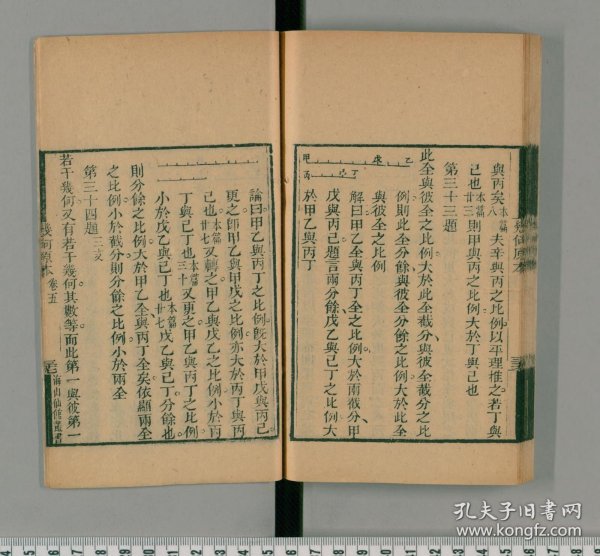 與丙矣本篇八夫辛與丙之比例以平理推之若丁與
己也本篇廿三則甲與丙之比例大於丁與己也
第三十三題
此全與彼全之比例大於此全截分與彼全截分之比
例則此全分餘與彼全分餘之比例大於此全
與彼全之比例
解曰甲乙全與丙丁全之比例大於兩截分甲
戊與丙己題言兩分餘戊乙與己丁之比例大
於甲乙與丙丁
甲 戊 乙
丙 己 丁
論曰甲乙與丙丁之比例既大於甲戊與丙己
更之即甲乙與甲戊之比例亦大於丙丁與丙
己也本篇廿七又轉之甲乙與戊乙之比例小於丙
丁與己丁也本篇三十又更之甲乙與丙丁之比例
小於戊乙與己丁也本篇廿七戊乙與己丁分餘也
則分餘之比例大於甲乙全與丙丁全矣依顯兩全
之比例小於截分則分餘之比例小於兩全
第三十四題三支
若干幾何又有若干幾何其數等而此第一與彼第一
幾何原本 卷五
海山仙館叢書
幾何原本
孔夫子旧书网
www.kongfz.com